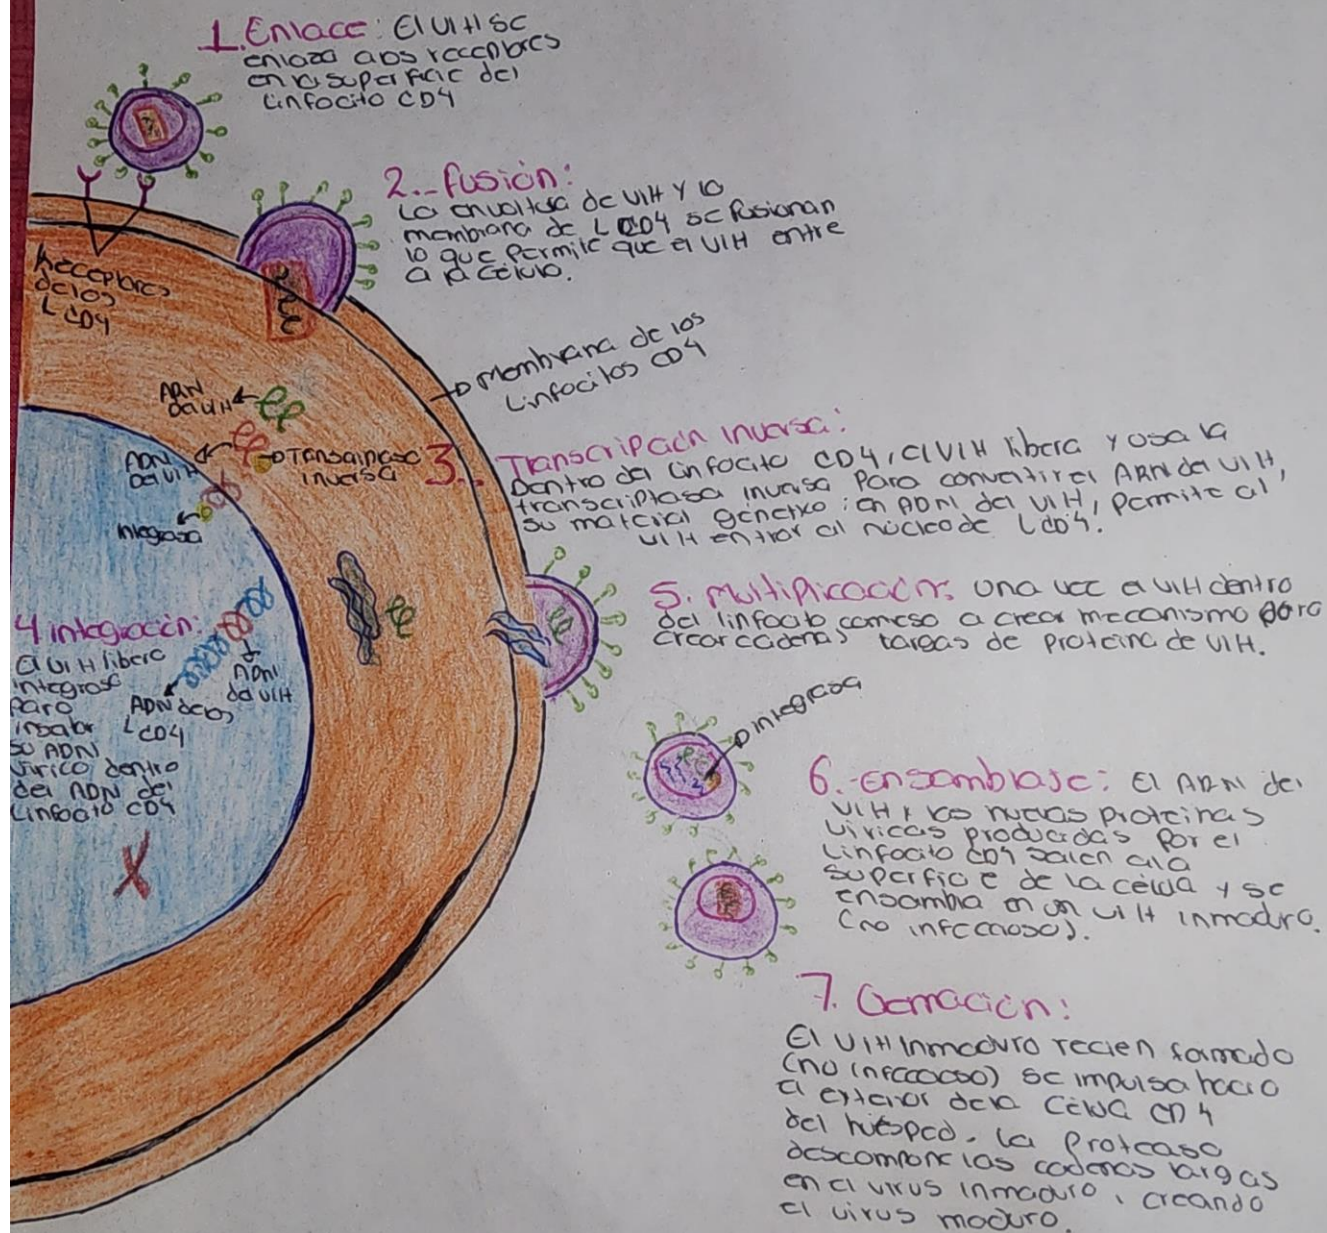 1. Enlace: El VIH se
enlaza a los receptores
en la superficie del
Linfocito CD4
2.- fusión:
La envoltura de VIH y la
membrana de L CD4 se fusionan
lo que permite que el VIH entre
a la célula.
Receptores
de los
L CD4
Membrana de los
Linfocitos CD4
ARN
del VIH
ADN
del VIH
Transcriptasa
inversa
Integrasa
3. Transcripción inversa:
Dentro del Linfocito CD4, el VIH libera y usa la
transcriptasa inversa para convertir el ARN del VIH,
su material genético: en ADN del VIH, permite al
VIH entrar al núcleo de L CD4.
4 integración:
El VIH libera
integrasa
para
insertar
su ADN
vírico dentro
del ADN del
Linfocito CD4
ADN
del VIH
ADN de los
L CD4
X
5. Multiplicación: Una vez el VIH dentro
del linfocito comieso a crear mecanismo para
crear cadenas largas de proteina de VIH.
integrasa
6.- ensamblaje: El ARN del
VIH y las nuevas proteinas
víricas producidas por el
Linfocito CD4 salen a la
superficie de la célula y se
ensambla en un VIH inmaduro.
(no infeccioso).
7. Gemación:
El VIH inmaduro recien formado
(no infeccioso) se impulsa hacia
el exterior de la célula CD4
del huésped. La proteasa
descompone las cadenas largas
en el virus inmaduro, creando
el virus maduro.